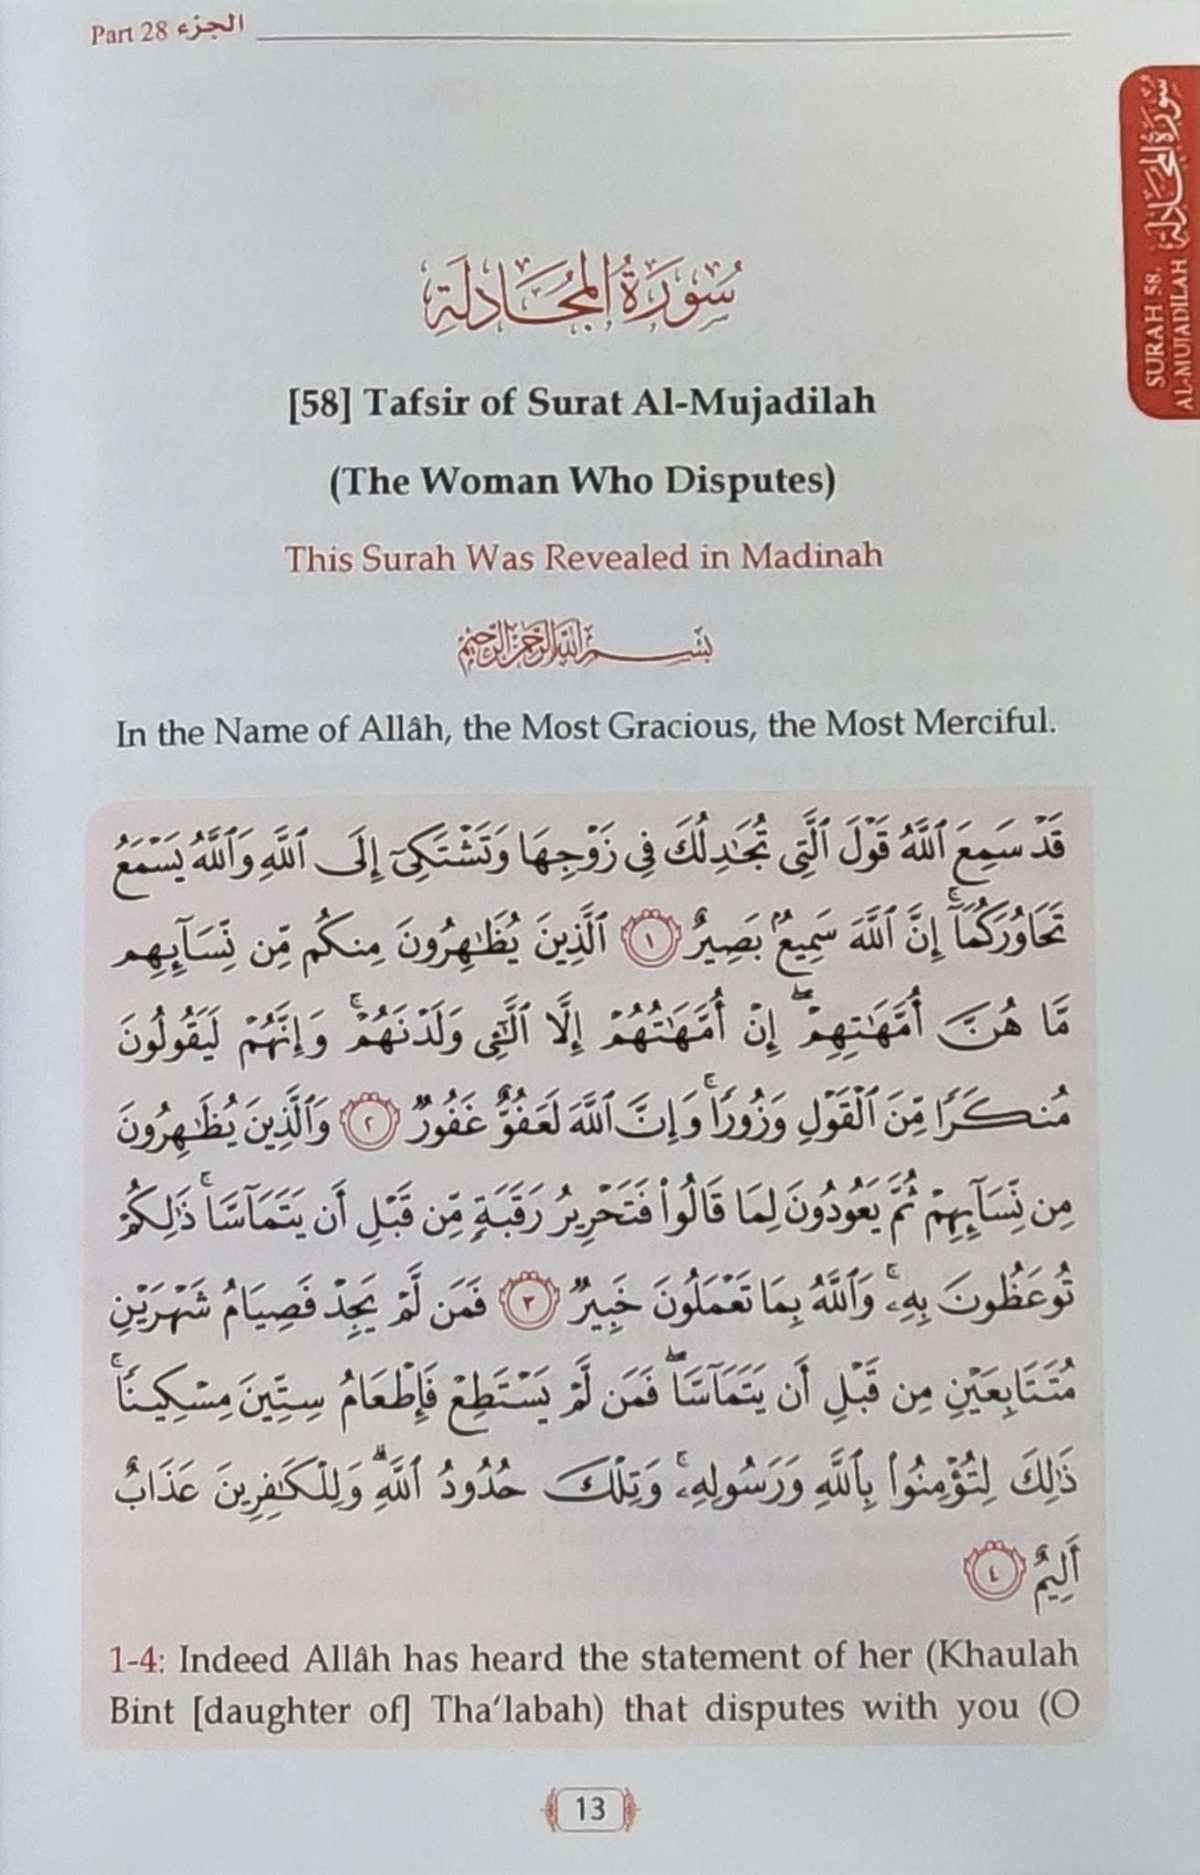 Part 28 الجزء
سُورَةُ المُجَادلَةِ
SURAH 58.
AL-MUJADILAH
سُورَةُ المُجَادلَةِ
[58] Tafsir of Surat Al-Mujadilah
(The Woman Who Disputes)
This Surah Was Revealed in Madinah
بِسْمِ اللَّهِ الرَّحْمَٰنِ الرَّحِيمِ
In the Name of Allâh, the Most Gracious, the Most Merciful.
قَدْ سَمِعَ ٱللَّهُ قَوْلَ ٱلَّتِى تُجَٰدِلُكَ فِى زَوْجِهَا وَتَشْتَكِىٓ إِلَى ٱللَّهِ وَٱللَّهُ يَسْمَعُ
تَحَاوُرَكُمَآ ۚ إِنَّ ٱللَّهَ سَمِيعٌۢ بَصِيرٌ ١ ٱلَّذِينَ يُظَٰهِرُونَ مِنكُم مِّن نِّسَآئِهِم
مَّا هُنَّ أُمَّهَٰتِهِمْ ۖ إِنْ أُمَّهَٰتُهُمْ إِلَّا ٱلَّٰٓـِٔى وَلَدْنَهُمْ ۚ وَإِنَّهُمْ لَيَقُولُونَ
مُنكَرًا مِّنَ ٱلْقَوْلِ وَزُورًا ۚ وَإِنَّ ٱللَّهَ لَعَفُوٌّ غَفُورٌ ٢ وَٱلَّذِينَ يُظَٰهِرُونَ
مِن نِّسَآئِهِمْ ثُمَّ يَعُودُونَ لِمَا قَالُوا۟ فَتَحْرِيرُ رَقَبَةٍ مِّن قَبْلِ أَن يَتَمَآسَّا ۚ ذَٰلِكُمْ
تُوعَظُونَ بِهِۦ ۚ وَٱللَّهُ بِمَا تَعْمَلُونَ خَبِيرٌ ٣ فَمَن لَّمْ يَجِدْ فَصِيَامُ شَهْرَيْنِ
مُتَتَابِعَيْنِ مِن قَبْلِ أَن يَتَمَآسَّا ۖ فَمَن لَّمْ يَسْتَطِعْ فَإِطْعَامُ سِتِّينَ مِسْكِينًا ۚ
ذَٰلِكَ لِتُؤْمِنُوا۟ بِٱللَّهِ وَرَسُولِهِۦ ۚ وَتِلْكَ حُدُودُ ٱللَّهِ ۗ وَلِلْكَٰفِرِينَ عَذَابٌ
أَلِيمٌ ٤
1-4: Indeed Allâh has heard the statement of her (Khaulah
Bint [daughter of] Tha‘labah) that disputes with you (O
13